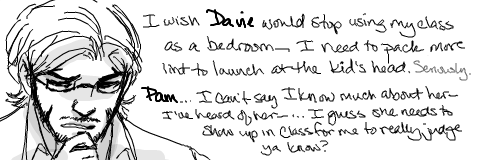 I wish Davie would stop using my class
as a bedroom— I need to pack more
lint to launch at the kid's head. Seriously.
Pam... I can't say I know much about her—
I've heard of her—... I guess she needs to
show up in class for me to really judge
ya know?